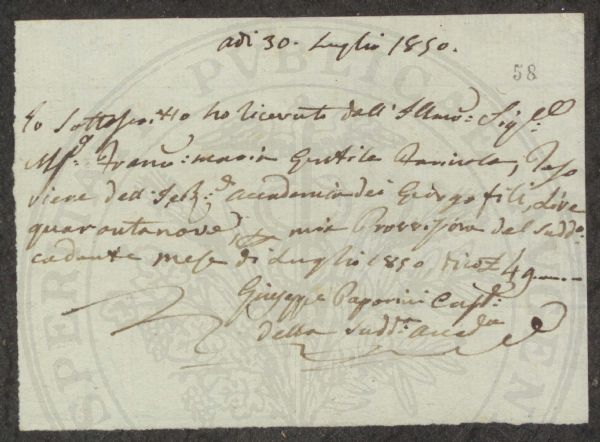 adi 30. Luglio 1850.
58
Io Sottoscritto ho ricevuto dall' Illmo: Sigre:
Franco: maria Gentile Farinola, Teso
riere della Accademia dei Georgofili, Lire
quarantanove mia Provvisione del sudd:o
cadente mese di Luglio 1850, dico £ 49
Giuseppe Paporini
della sudd:a Accad.a